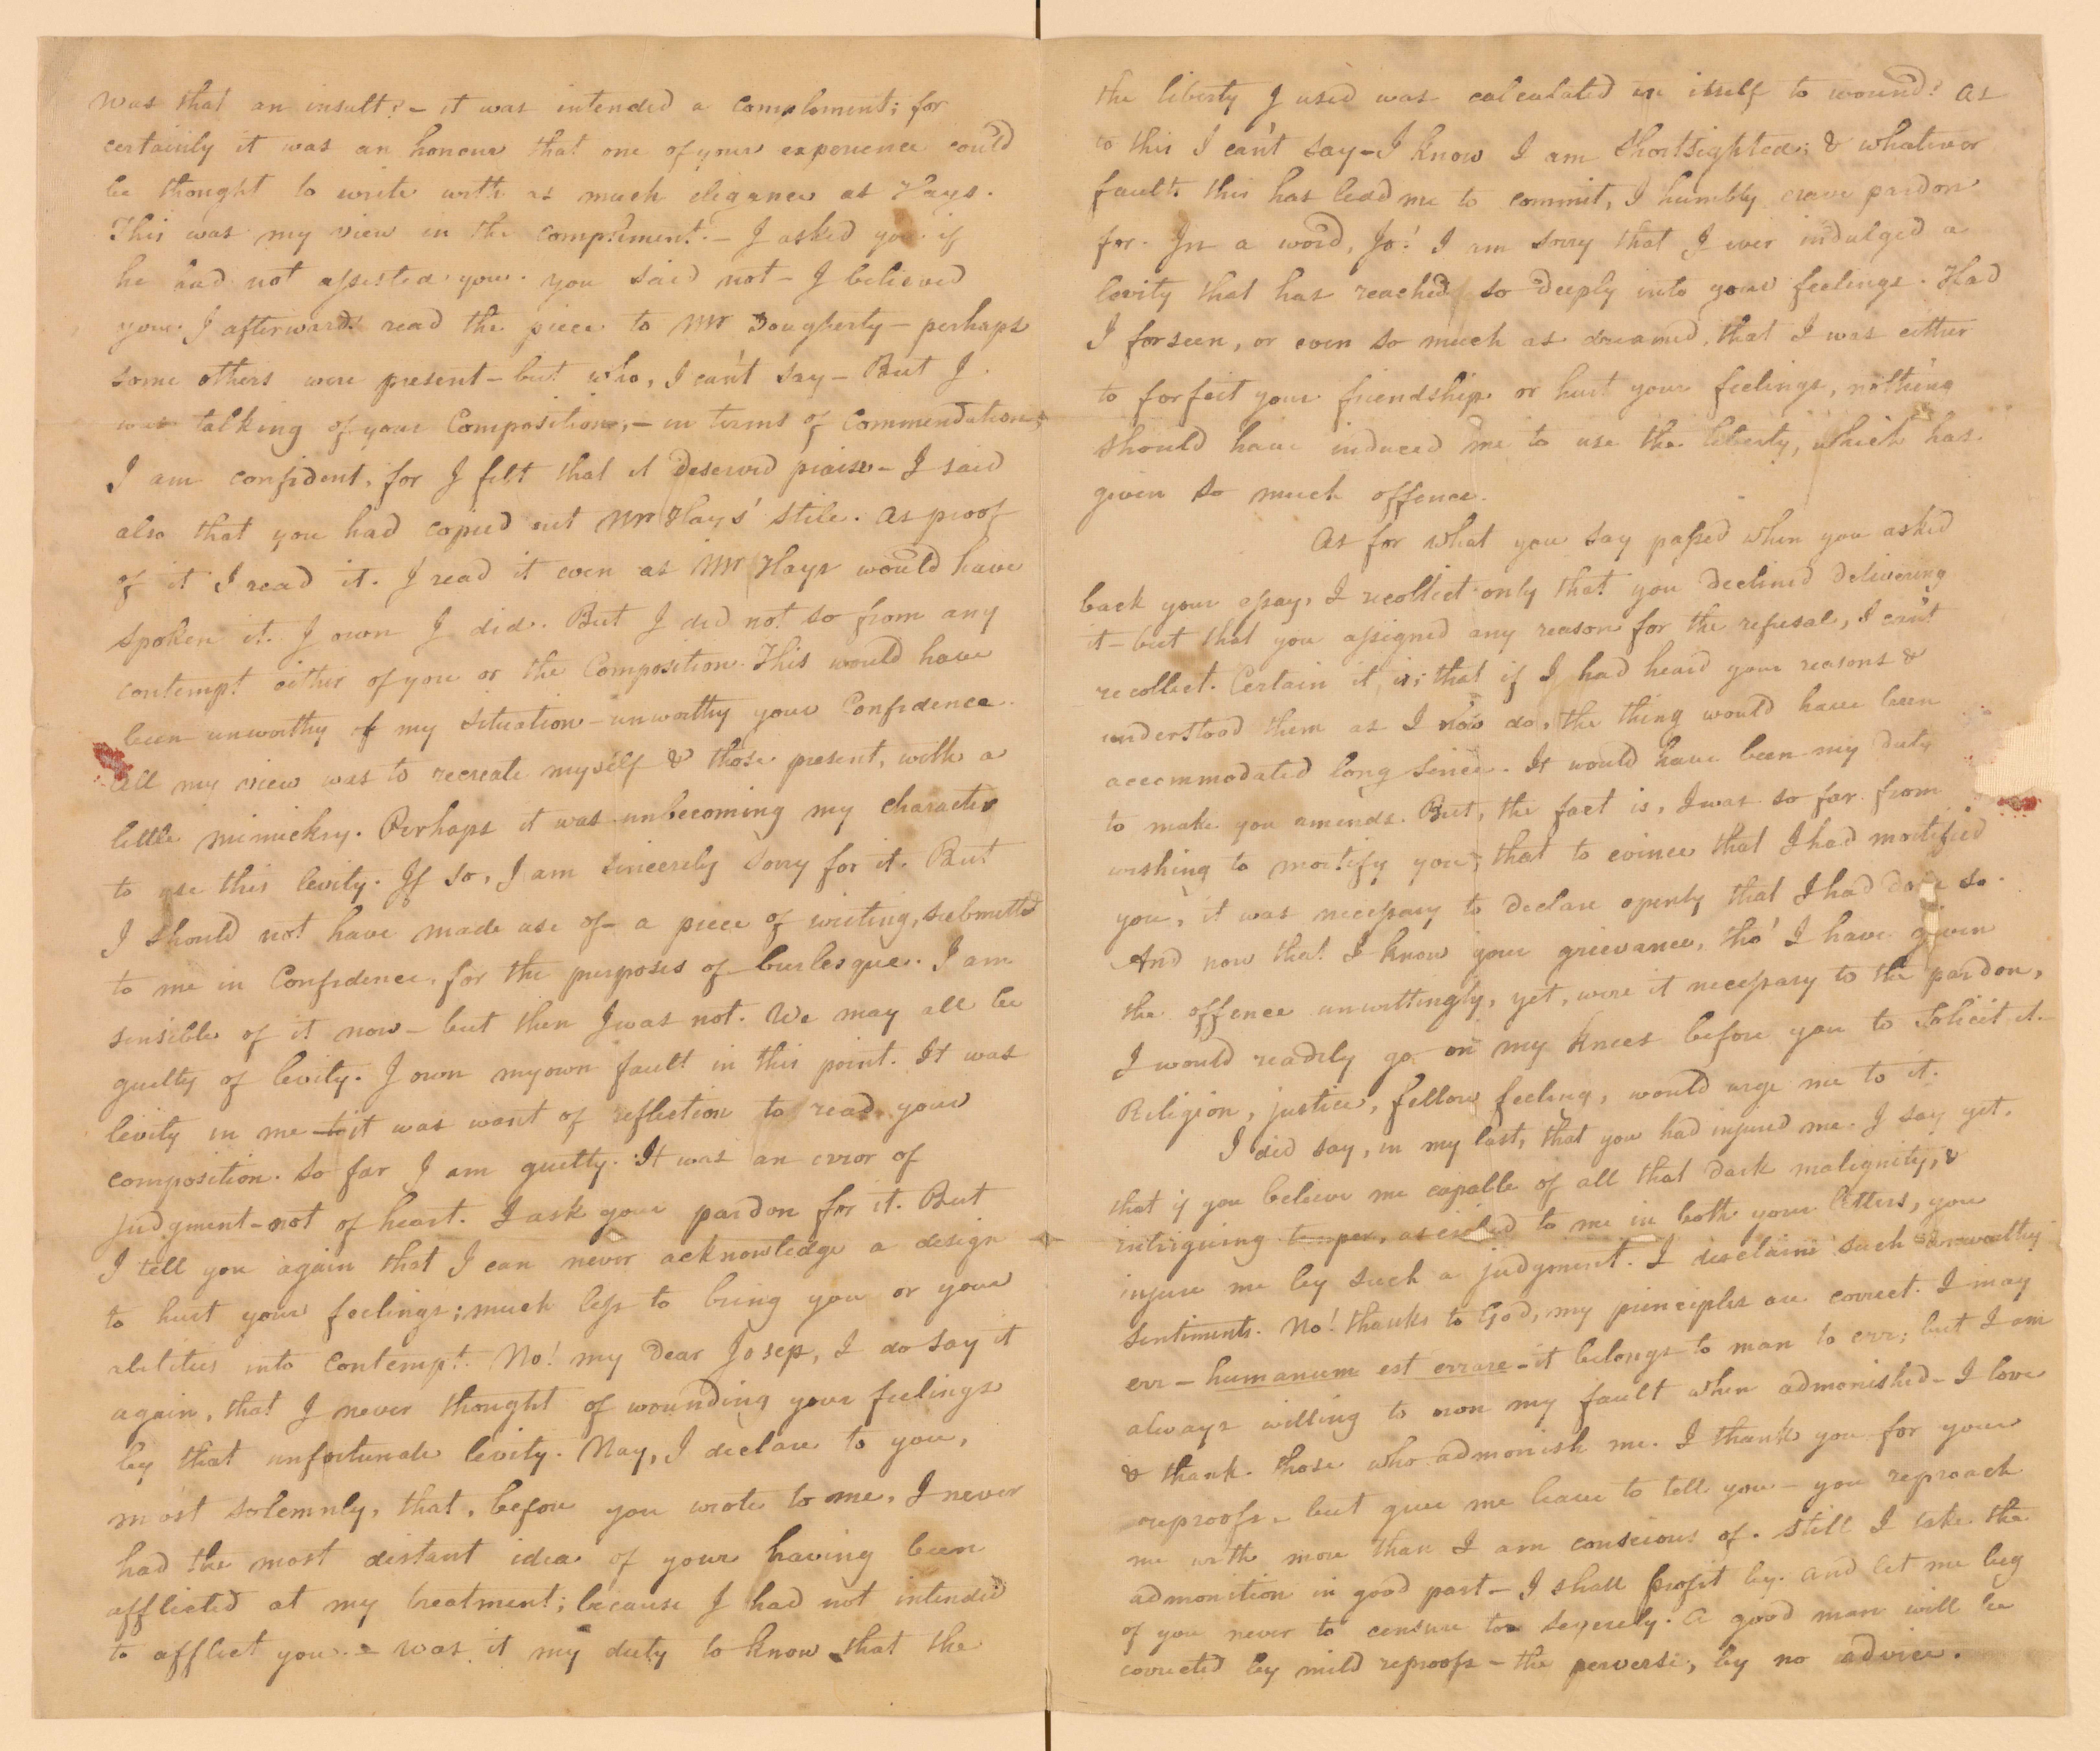 was that an insult? - it was intended a comploment; for
certainly it was an honour that one of your experience could
be thought to write with as much elegance as Hays.
This was my view in the compliment. - I asked you if
he had not assisted you. you said not - I believed
you. I afterwards read the piece to Mr Dougherty - perhaps
some others were present - but who, I can't say - But I
was talking of your Composition, - in terms of Commendation,
I am confident, for I felt that it deserved praise - I said
also that you had copied out Mr Hays' stile. As proof
of it I read it. I read it even as Mr Hays would have
spoken it. I own I did. But I did not so from any
contempt either of you or the Composition. This would have
been unworthy of my situation - unworthy your Confidence.
All my view was to recreate myself & those present, with a
little mimickry. Perhaps it was unbecoming my character
to use this levity. If so, I am sincerely sorry for it. But
I should not have made use of a piece of writing, submitted
to me in Confidence, for the purposes of burlesque. I am
sensible of it now - but then I was not. We may all be
guilty of levity. I own my own fault in this point. It was
levity in me - it was want of reflection to read your
composition. So far I am guilty. It was an error of
judgment - not of heart. I ask your pardon for it. But
I tell you again that I can never acknowledge a design
to hurt your feelings; much less to bring you or your
abilities into Contempt. No! my dear Josep, I do say it
again, that I never thought of wounding your feelings
by that unfortunate levity. Nay, I declare to you,
most solemnly, that, before you wrote to me, I never
had the most distant idea of your having been
afflicted at my treatment; because I had not intended
to afflict you. - was it my duty to know that the
the liberty I used was calculated in itself to wound? As
to this I can't say - I know I am shortsighted; & whatever
faults this has lead me to commit, I humbly crave pardon
for. In a word, Jo! I am sorry that I ever indulged a
levity that has reached so deeply into your feelings. Had
I forseen, or even so much as dreamed, that I was either
to forfeit your friendship or hurt your feelings, nothing
should have induced me to use the liberty, which has
given so much offence.
As for what you say passed when you asked
back your essay, I recollect only that you declined delivering
it - but that you assigned any reason for the refusal, I can't
recollect. Certain it is; that if I had heard your reasons &
understood them as I now do, the thing would have been
accommodated long since. It would have been my duty
to make you amends. But, the fact is, I was so far from
wishing to mortify you, that to evince that I had mortified
you, it was necessary to declare openly that I had done so.
And now that I know your grievance, tho' I have given
the offence unwittingly, yet, were it necessary to the pardon,
I would readily go on my knees before you to solicit it.
Religion, justice, fellow feeling, would urge me to it.
I did say, in my last, that you had injured me. I say yet,
that if you believe me capable of all that dark malignity, &
intriguing temper, ascribed to me in both your letters, you
injure me by such a judgment. I disclaim such unworthy
sentiments. No! thanks to God, my principles are correct. I may
err - humanum est errare - it belongs to man to err; but I am
always willing to own my fault when admonished - I love
& thank those who admonish me. I thank you for your
reproofs - but give me leave to tell you - you reproach
me with more than I am conscious of. Still I take the
admonition in good part - I shall profit by. And let me beg
of you never to censure too severely. A good man will be
corrected by mild reproofs - the perverse, by no advice.